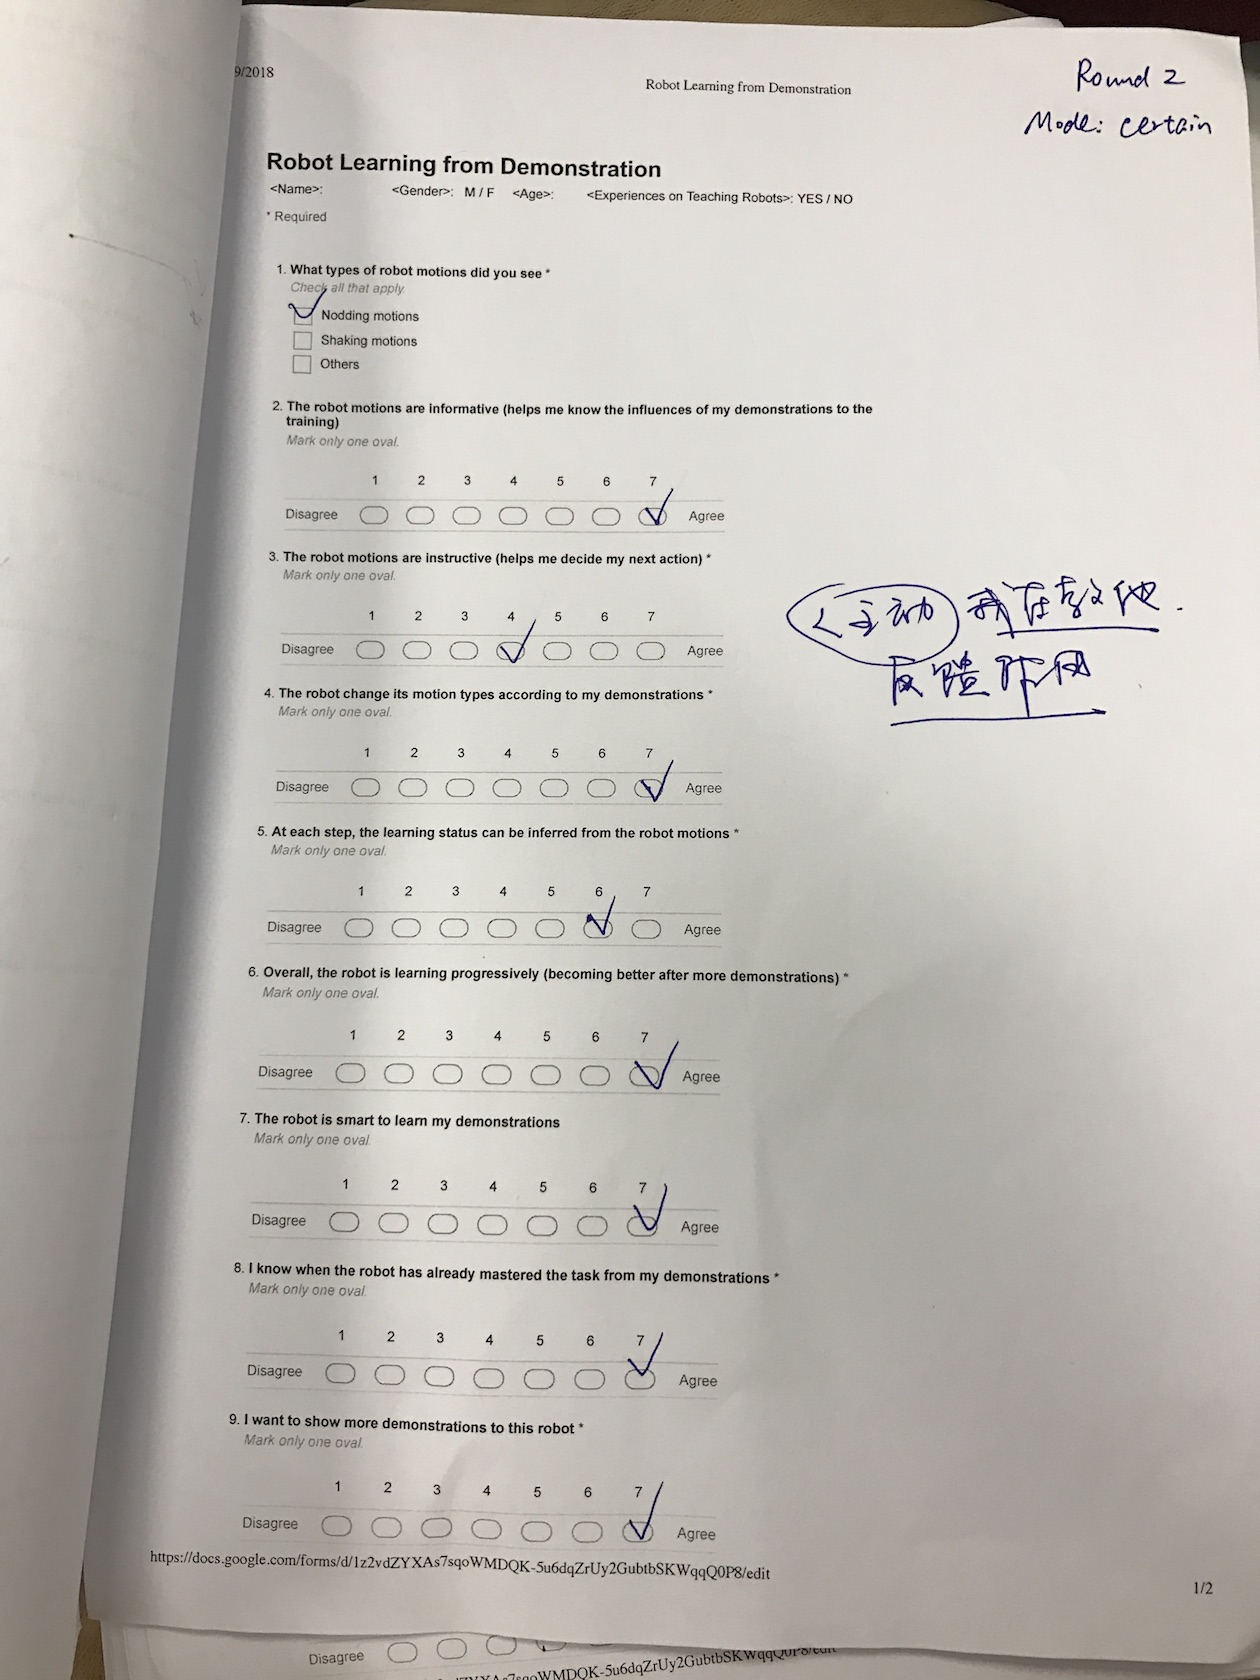 9/2018
Robot Learning from Demonstration
Round 2
Mode: certain
Robot Learning from Demonstration
<Name>: <Gender>: M / F <Age>: <Experiences on Teaching Robots>: YES / NO
* Required
1. What types of robot motions did you see *
Check all that apply.
Nodding motions
Shaking motions
Others
2. The robot motions are informative (helps me know the influences of my demonstrations to the
training)
Mark only one oval.
1 2 3 4 5 6 7
Disagree Agree
3. The robot motions are instructive (helps me decide my next action) *
Mark only one oval.
1 2 3 4 5 6 7
Disagree Agree
<主动 我在教他.
反馈作用
4. The robot change its motion types according to my demonstrations *
Mark only one oval.
1 2 3 4 5 6 7
Disagree Agree
5. At each step, the learning status can be inferred from the robot motions *
Mark only one oval.
1 2 3 4 5 6 7
Disagree Agree
6. Overall, the robot is learning progressively (becoming better after more demonstrations) *
Mark only one oval.
1 2 3 4 5 6 7
Disagree Agree
7. The robot is smart to learn my demonstrations
Mark only one oval.
1 2 3 4 5 6 7
Disagree Agree
8. I know when the robot has already mastered the task from my demonstrations *
Mark only one oval.
1 2 3 4 5 6 7
Disagree Agree
9. I want to show more demonstrations to this robot *
Mark only one oval.
1 2 3 4 5 6 7
Disagree Agree
https://docs.google.com/forms/d/1z2vdZYXAs7sqoWMDQK-5u6dqZrUy2GubtbSKWqqQ0P8/edit
1/2
Disagree
WMDQK-5u6dqZrUy2GubtbSKWqqQ0P8/edit